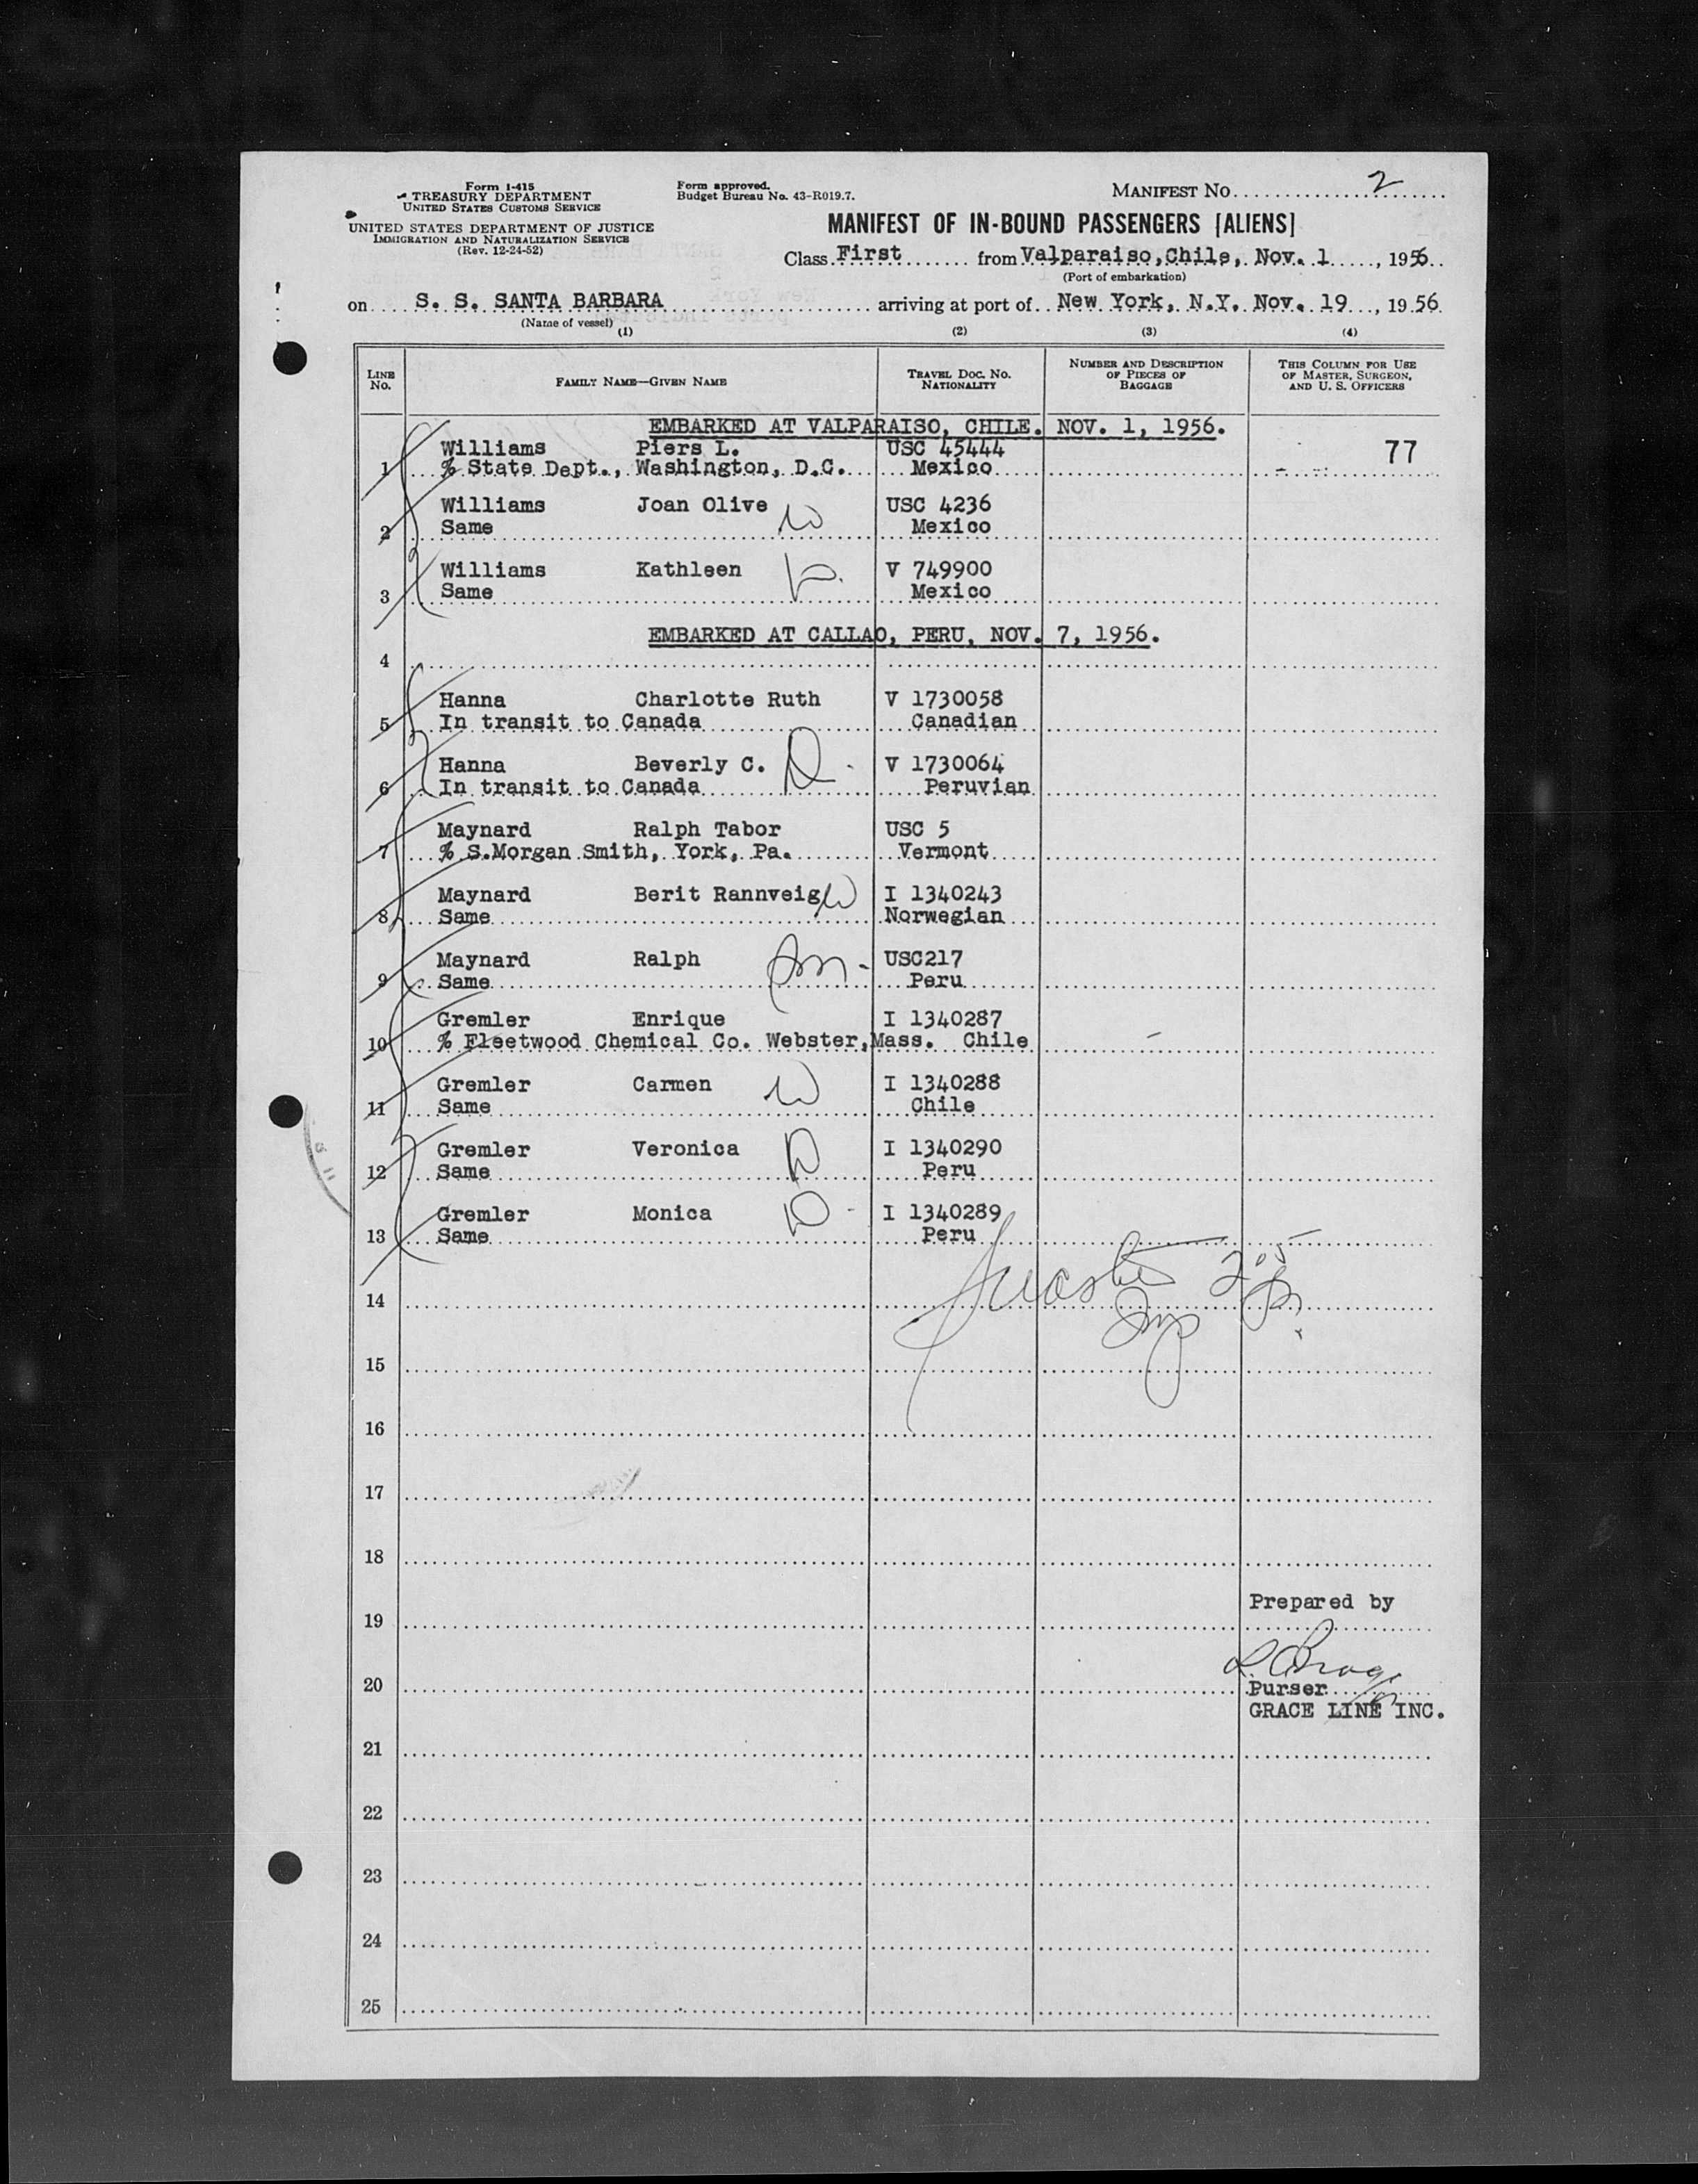 Form I-415
TREASURY DEPARTMENT
UNITED STATES CUSTOMS SERVICE
UNITED STATES DEPARTMENT OF JUSTICE
IMMIGRATION AND NATURALIZATION SERVICE
(Rev. 12-24-52)
Form approved.
Budget Bureau No. 43-R019.7.
MANIFEST NO. 2
MANIFEST OF IN-BOUND PASSENGERS [ALIENS]
Class First from Valparaiso, Chile, Nov. 1, 1956
(Port of embarkation)
on S. S. SANTA BARBARA arriving at port of New York, N.Y. Nov. 19, 1956
(Name of vessel) (1) (2) (3) (4)
LINE NO. FAMILY NAME—GIVEN NAME TRAVEL DOC. NO. NATIONALITY NUMBER AND DESCRIPTION OF PIECES OF BAGGAGE THIS COLUMN FOR USE OF MASTER, SURGEON, AND U. S. OFFICERS
EMBARKED AT VALPARAISO, CHILE. NOV. 1, 1956.
Williams Piers L. USC 45444 77
1 % State Dept., Washington, D.C. Mexico
Williams Joan Olive USC 4236
2 Same Mexico
Williams Kathleen V 749900
3 Same Mexico
EMBARKED AT CALLAO, PERU, NOV. 7, 1956.
4
Hanna Charlotte Ruth V 1730058
5 In transit to Canada Canadian
Hanna Beverly C. V 1730064
6 In transit to Canada Peruvian
Maynard Ralph Tabor USC 5
7 % S.Morgan Smith, York, Pa. Vermont
Maynard Berit Rannveig I 1340243
8 Same Norwegian
Maynard Ralph USC217
9 Same Peru
Gremler Enrique I 1340287
10 % Fleetwood Chemical Co. Webster,Mass. Chile
Gremler Carmen I 1340288
11 Same Chile
Gremler Veronica I 1340290
12 Same Peru
Gremler Monica I 1340289
13 Same Peru
14
15
16
17
18
Prepared by
19
20 Purser
GRACE LINE INC.
21
22
23
24
25